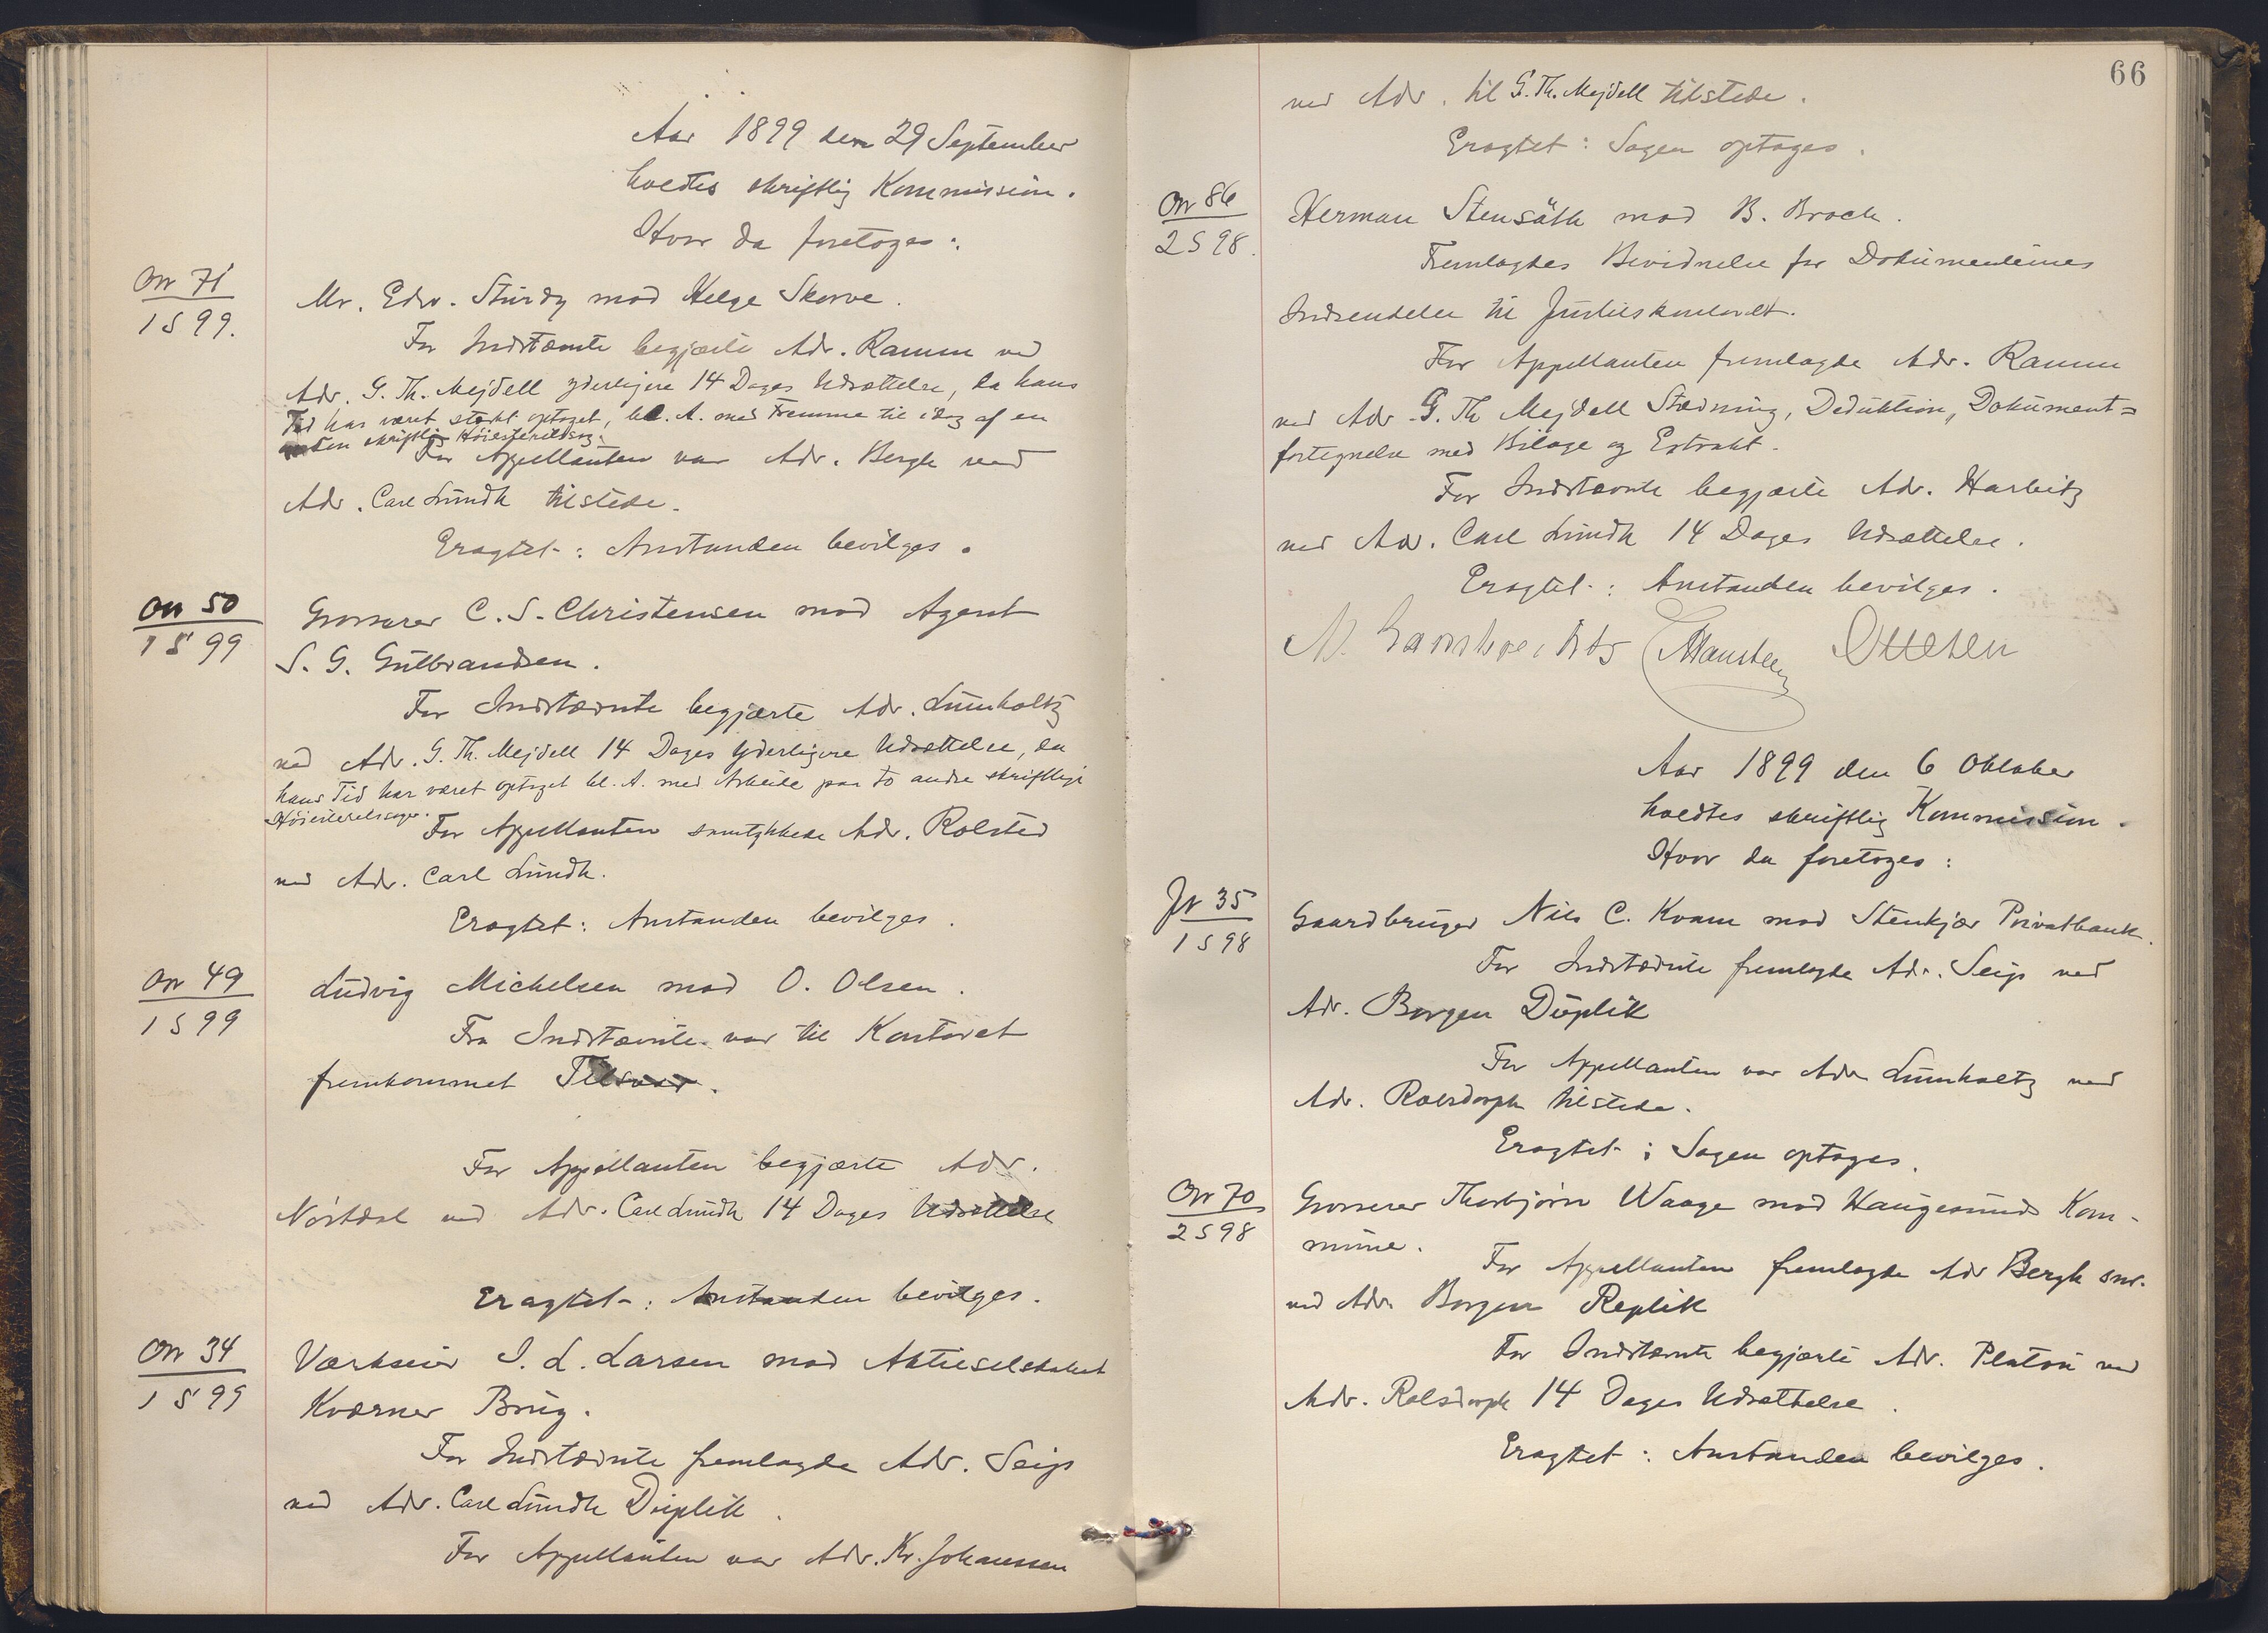 Aar 1899 den 29 September
holdtes skriftlig Kommission.
Hvor da foretoges:
On 71
1 S 99.
Mr. Edw. Sturdy mod Helge Skorve.
For Indstævnte begjærte Adv. Ramm ved
Adv. G. Th. Mejdell yderligere 14 Dages Udsættelse, da hans
Tid har været stærkt optaget, bl. A. med Fremme til idag af en
anden skriftlig Høiesteretssag.
For Appellanten var Adv. Bergh ved
Adv. Carl Lundh tilstede.
Eragtet: Anstanden bevilges.
On 50
1 S 99
Grosserer C. S. Christensen mod Agent
S. G. Gulbrandsen.
For Indstævnte begjærte Adv. Lumholtz
ved Adv. G. Th. Mejdell 14 Dages yderligere Udsættelse, da
hans Tid har været optaget bl. A. med Arbeide paa to andre skriftlige
Høiesteretssager.
For Appellanten samtykkede Adv. Rolsted
ved Adv. Carl Lundh.
Eragtet: Anstanden bevilges.
On 49
1 S 99
Ludvig Michelsen mod O. Olsen.
Fra Indstævnte var til Kontoret
fremkommet Tilsvar.
For Appellanten begjærte Adv.
Nørdal ved Adv. Carl Lundh 14 Dages Udsættelse
Eragtet: Anstanden bevilges.
On 34
1 S 99
Værkseier I. L. Larsen mod Aktieselskabet
Kværner Brug.
For Indstævnte fremlagde Adv. Seip
ved Adv. Carl Lundh Duplik.
For Appellanten var Adv. Kr. Johanssen
66
ved Adv. til G. Th. Mejdell tilstede.
Eragtet: Sagen optages.
On 86
2 S 98.
Herman Stensäth mod B. Broch.
Fremlagdes Bevidnelse for Dokumenternes
Indsendelse til Justiskontoret.
For Appellanten fremlagde Adv. Ramm
ved Adv. G. Th Mejdell Stævning, Deduktion, Dokument=
fortegnelse med Bilage og Extrakt.
For Indstævnte begjærte Adv. Harbitz
ved Adv. Carl Lundh 14 Dages Udsættelse.
Eragtet: Anstanden bevilges.
Hansteen Ottesen
Aar 1899 den 6 Oktober
holdtes skriftlig Kommission.
Hvor da foretoges:
Jr 35
1 S 98
Gaardbruger Nils C. Kvam mod Stenkjær Privatbank.
For Indstævnte fremlagde Adv. Seip ved
Adv. Borgen Duplik
For Appellanten var Adv Lumholtz ved
Adv. Rolsdorph tilstede.
Eragtet: Sagen optages.
On 70
2 S 98
Grosserer Thorbjørn Waage mod Haugesunds Kom-
mune.
For Appellanten fremlagde Adv Bergh snr.
ved Adv. Borgen Replik
For Indstævnte begjærte Adv. Platou ved
Adv. Rolsdorph 14 Dages Udsættelse.
Eragtet: Anstanden bevilges.